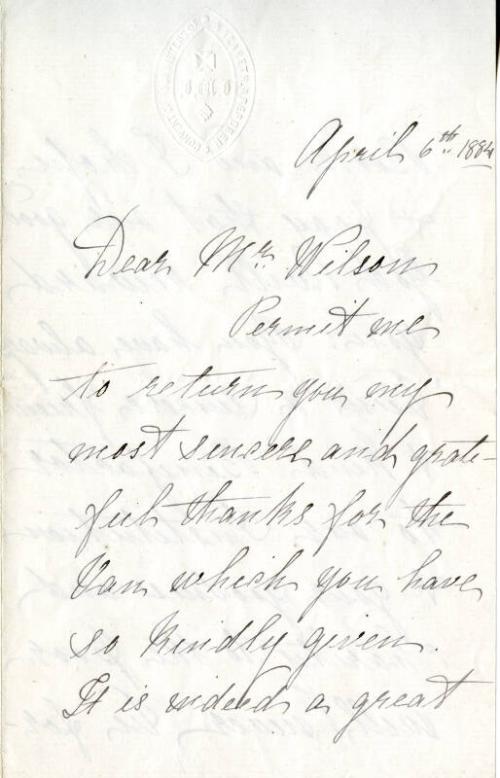 April 6th. 1884
Dear Mr. Wilson
Permit me
to return you my
most sincere and grate-
ful thanks for the
Van which you have
so kindly given.
It is indeed a great